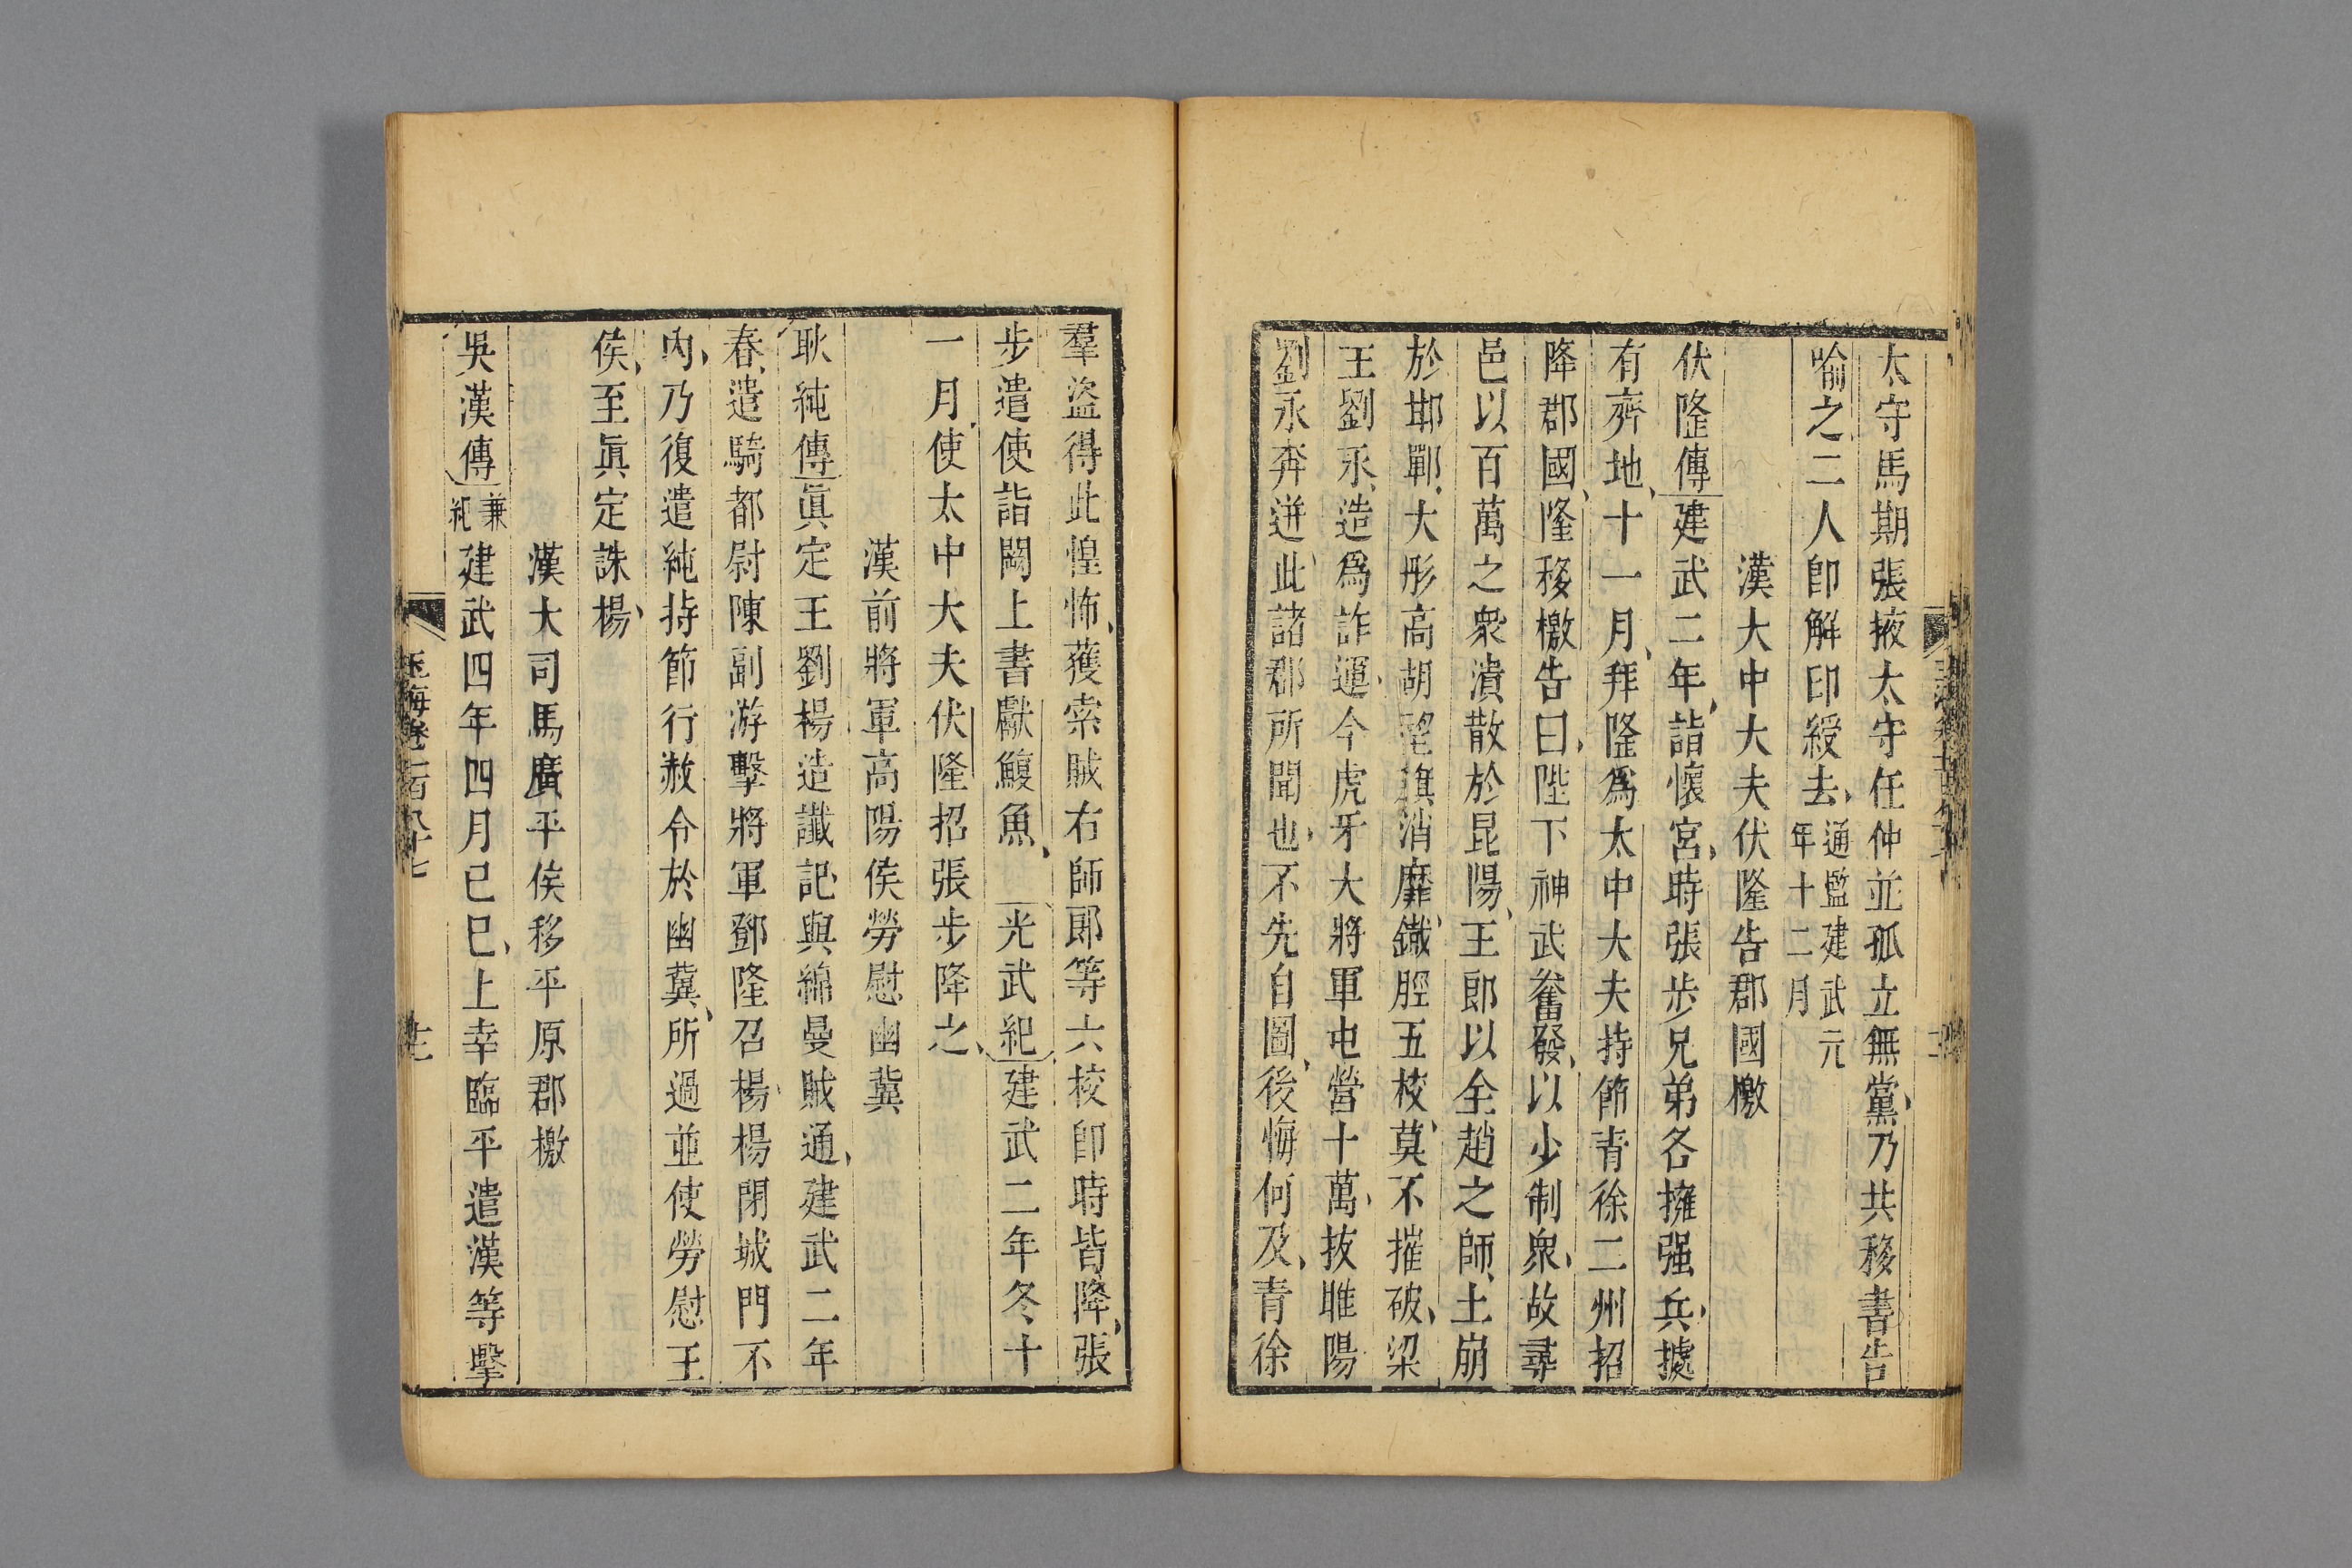 太守馬期張掖太守任仲並孤立無黨乃共移書告
喻之二人卽解印綬去通鑑建武元年十二月
漢大中大夫伏隆告郡國檄
伏隆傳建武二年詣懷宮時張步兄弟各擁强兵據
有齊地十一月拜隆爲太中大夫持節靑徐二州招
降郡國隆移檄告曰陛下神武奮發以少制衆故尋
邑以百萬之衆潰散於昆陽王郎以全趙之師土崩
於邯鄲大彤高胡望旗消靡鐵脛五校莫不摧破梁
王劉永造爲詐逆今虎牙大將軍屯營十萬拔睢陽
劉永奔迸此諸郡所聞也不先自圖後悔何及靑徐
羣盜得此惶怖獲索賊右師郎等六校卽時皆降張
步遣使詣闕上書獻鰒魚光武紀建武二年冬十
一月使太中大夫伏隆招張步降之
漢前將軍高陽侯勞慰幽冀
耿純傳眞定王劉楊造讖記與綿曼賊通建武二年
春遣騎都尉陳副游擊將軍鄧隆召楊楊閉城門不
內乃復遣純持節行赦令於幽冀所過並使勞慰王
侯至眞定誅楊
漢大司馬廣平侯移平原郡檄
吳漢傳兼紀建武四年四月己巳上幸臨平遣漢等擊
玉海卷一百八十七